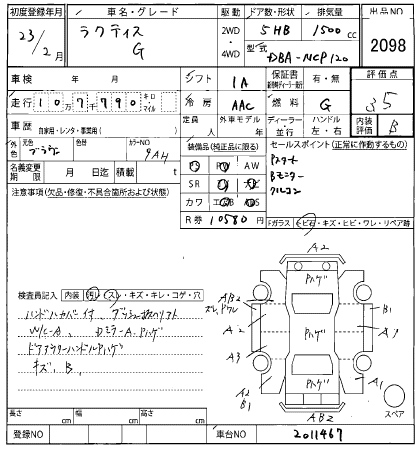 初度登録年月
車名・グレード
駆動
ドア数・形状
排気量
出品NO
23/2月
ラクティス
G
2WD
・
4WD
5HB
1500 cc
型式
DBA-NCP120
2098
車検 年 月
シフト
1A
保証書
有・無
評価点
走行 10万7千790 キロ・マイル
冷房
AAC
燃料
G
3.5
車歴
自家用・レンタ・事業用( )
定員
人
外車モデル
年
ディーラー
・
並行
ハンドル
左・右
内装評価
B
外色
元色
色替
カラーNO
9AH
名義変更期限
月 日迄
積載
t
装備品(純正品に限る)
PS PW AW
SR
カワ
R券 10580 円
セールスポイント(正常に作動するもの)
Pスタート
Bモニター
クルコン
注意事項(欠品・修復・不具合箇所および状態)
Fガラス トビ石・キズ・ヒビ・ワレ・リペア跡
検査員記入
内装 汚レ・スレ・キズ・キレ・コゲ・穴
ハンドルカバー付
W/C-A、DミラーA、Pハゲ
ドアアウターハンドルPハゲ
キズ、B、
A2
Pハゲ
AB2
B1
A2
Pハゲ
A3
Pハゲ
A1
A2
B1
AB2
スペア
長さ cm
幅 cm
高さ cm
登録NO
車台NO
2011467